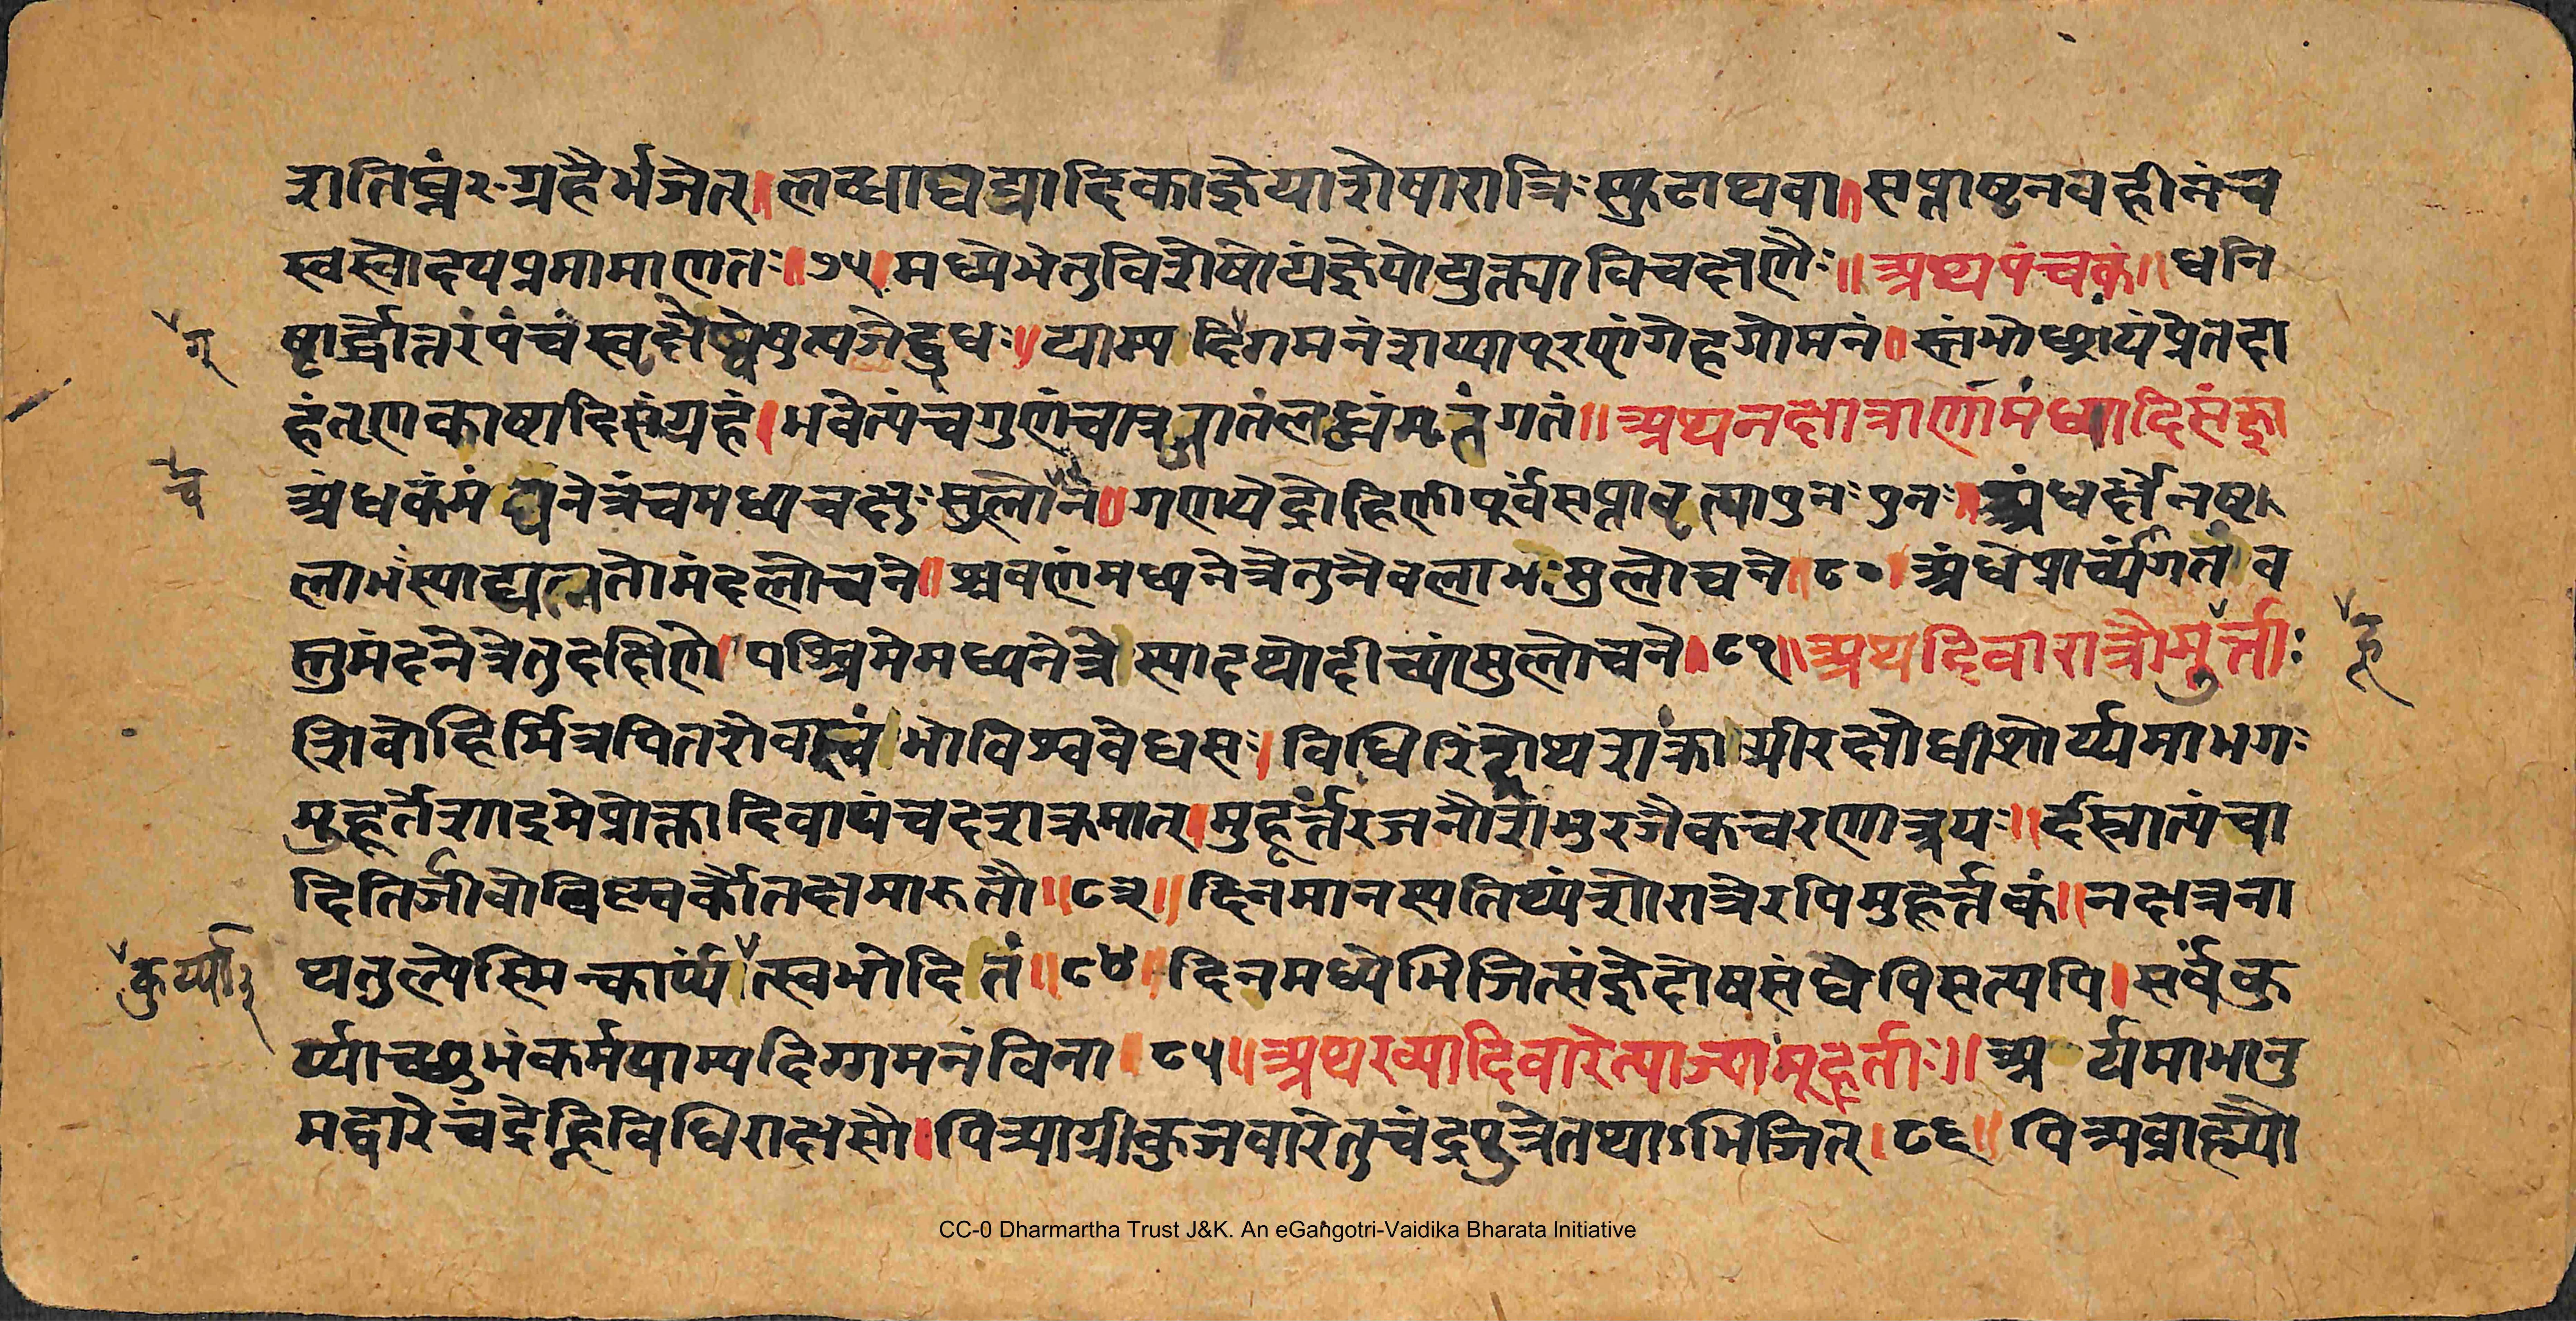 रातिघ्नं२॰ग्रहैर्भजेत्। लब्धाघद्यादिकाज्ञेयाशेषारात्रिःस्फुटाथवा॥सप्ताष्टनवहीनंच
स्वस्वोदयप्रमामाणतः॥७५॥मध्येभेतुविशेषोयंज्ञेयोयुक्त्याविचक्षणैः॥अथपंचकं॥धनि
ष्टार्द्धोत्तरंपंचस्वर्क्षेष्वेषुत्यजेद्बुधः॥याम्यदिगमनंशय्यापूरणंगेहगोमनं॥स्तंभोच्छ्रायंप्रेतदा
हंतृणकाष्ठादिसंग्रहं।भवेत्पंचगुणंचात्र
अथनक्षत्राणामंधादिसंज्ञा
अंधकंमं
नेत्रंचमध्यचक्षुःसुलोनं॥गणयेद्रोहिणीपूर्वंसप्तावृत्त्यापुनःपुनः॥अंधर्क्षेनष्ट
लाभंस्याद्यत्नतोमंदलोचने॥श्रवणंमध्यनेत्रेतुनैवलाभःसुलोचने॥८०॥अंधेप्राच्यंगतंव
स्तुमंदनेत्रेतुदक्षिणे।पश्चिमेमध्यनेत्रेस्यादथोदीच्यांसुलोचने॥८१॥अथदिवारात्रौमुर्त्ताः
हू
शिवोहिर्मित्रपितरोवास्वंभोविश्ववेधसः।विधिरिंद्रोथशक्राग्नीरक्षोधीशोर्य्यमाभगः
मुहूर्तेशाइमेप्रोक्तादिवापंचदशक्रमात्।मुहूर्त्तरजनौशंभुरजैकचरणात्रयः॥र्दस्त्रात्पंचा
दितिर्जीवोविष्ण्वर्कौतक्षमारुतौ॥८३॥दिनमानस्यतिथ्यंशोरात्रेरपिमुहूर्त्तकं॥नक्षत्रना
कुर्य्या२
थतुल्येस्मिन्कार्य्यंत्स्वभोदितं॥८४॥दिनमध्येभिजित्संज्ञेदोषसंघेपिसत्यपि।सर्वंकु
र्य्याच्छुभंकर्मयाम्यदिग्गमनंविना।८५॥अथरव्यादिवारेत्याज्यामूहूर्ताः॥अर्यमाभानु
मद्वारेचंद्रेह्निविधिराक्षसौ।पित्र्याग्नीकुजवारेतुचंद्रपुत्रेतथाऽभिजित्।८६॥पित्र्यब्राह्म्यौ
CC-0 Dharmartha Trust J&K. An eGangotri-Vaidika Bharata Initiative